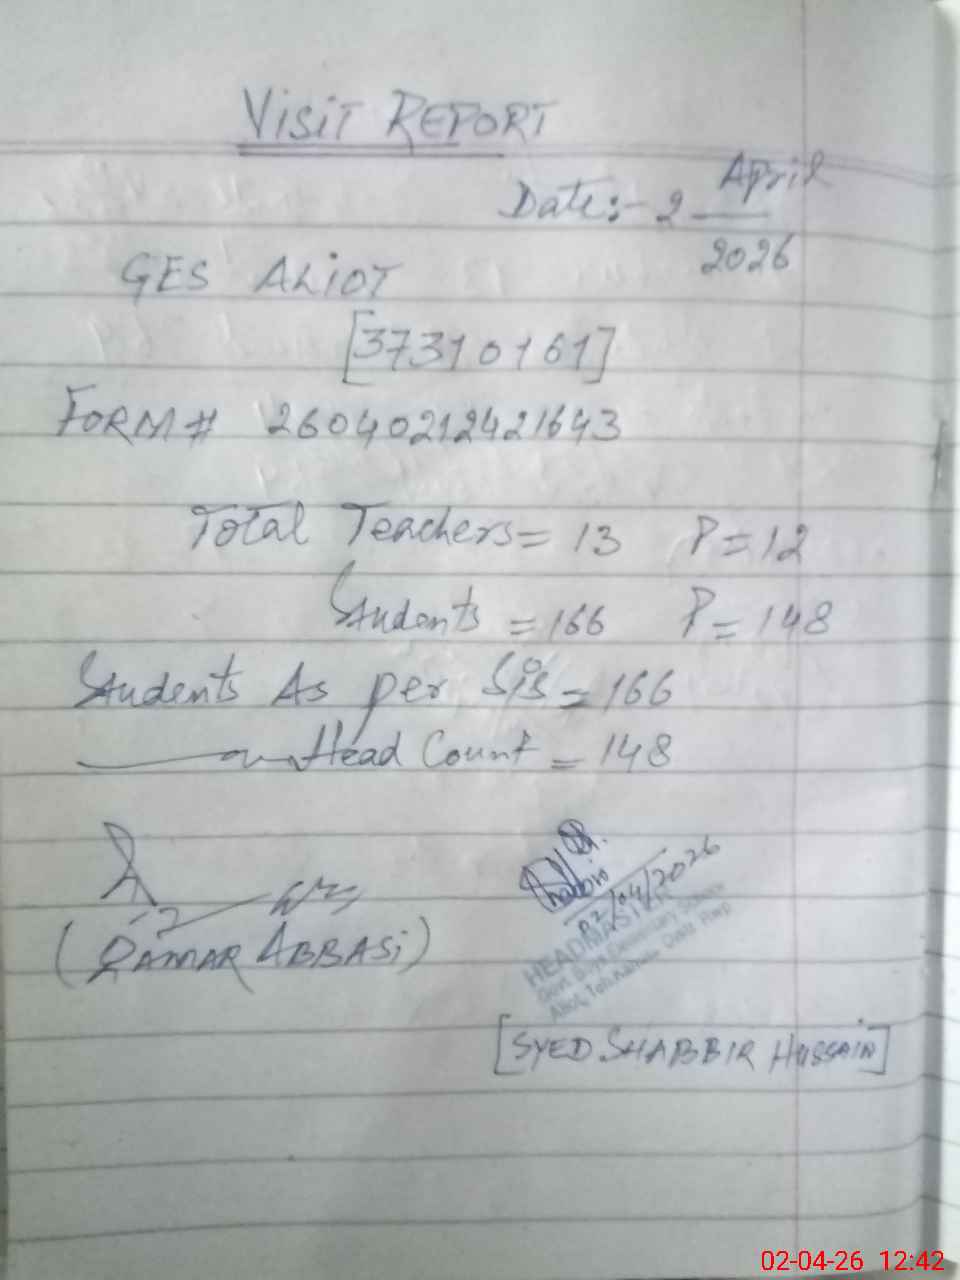 VISIT REPORT
Date:- 2 April
2026
GES ALIOT
[37310161]
FORM# 26040212421643
Total Teachers = 13 P = 12
Students = 166 P = 148
Students As per SiS = 166
Head Count = 148
02/04/2026
HEADMASTER
Govt. Boys Elementary School
(QAMAR ABBASi)
[SYED SHABBIR HUSSAIN]
02-04-26 12:42